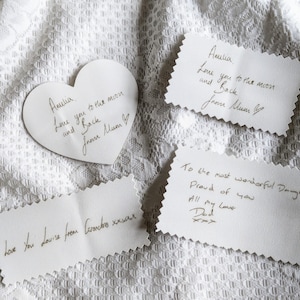 Amelia
Love you to the moon
and Back
from Mum
Amelia
Love you to the moon
and Back
from Mum
To the most wonderful
Proud of you
All my Love
Dad
xxx
Love You from Grandma xxxxxxx